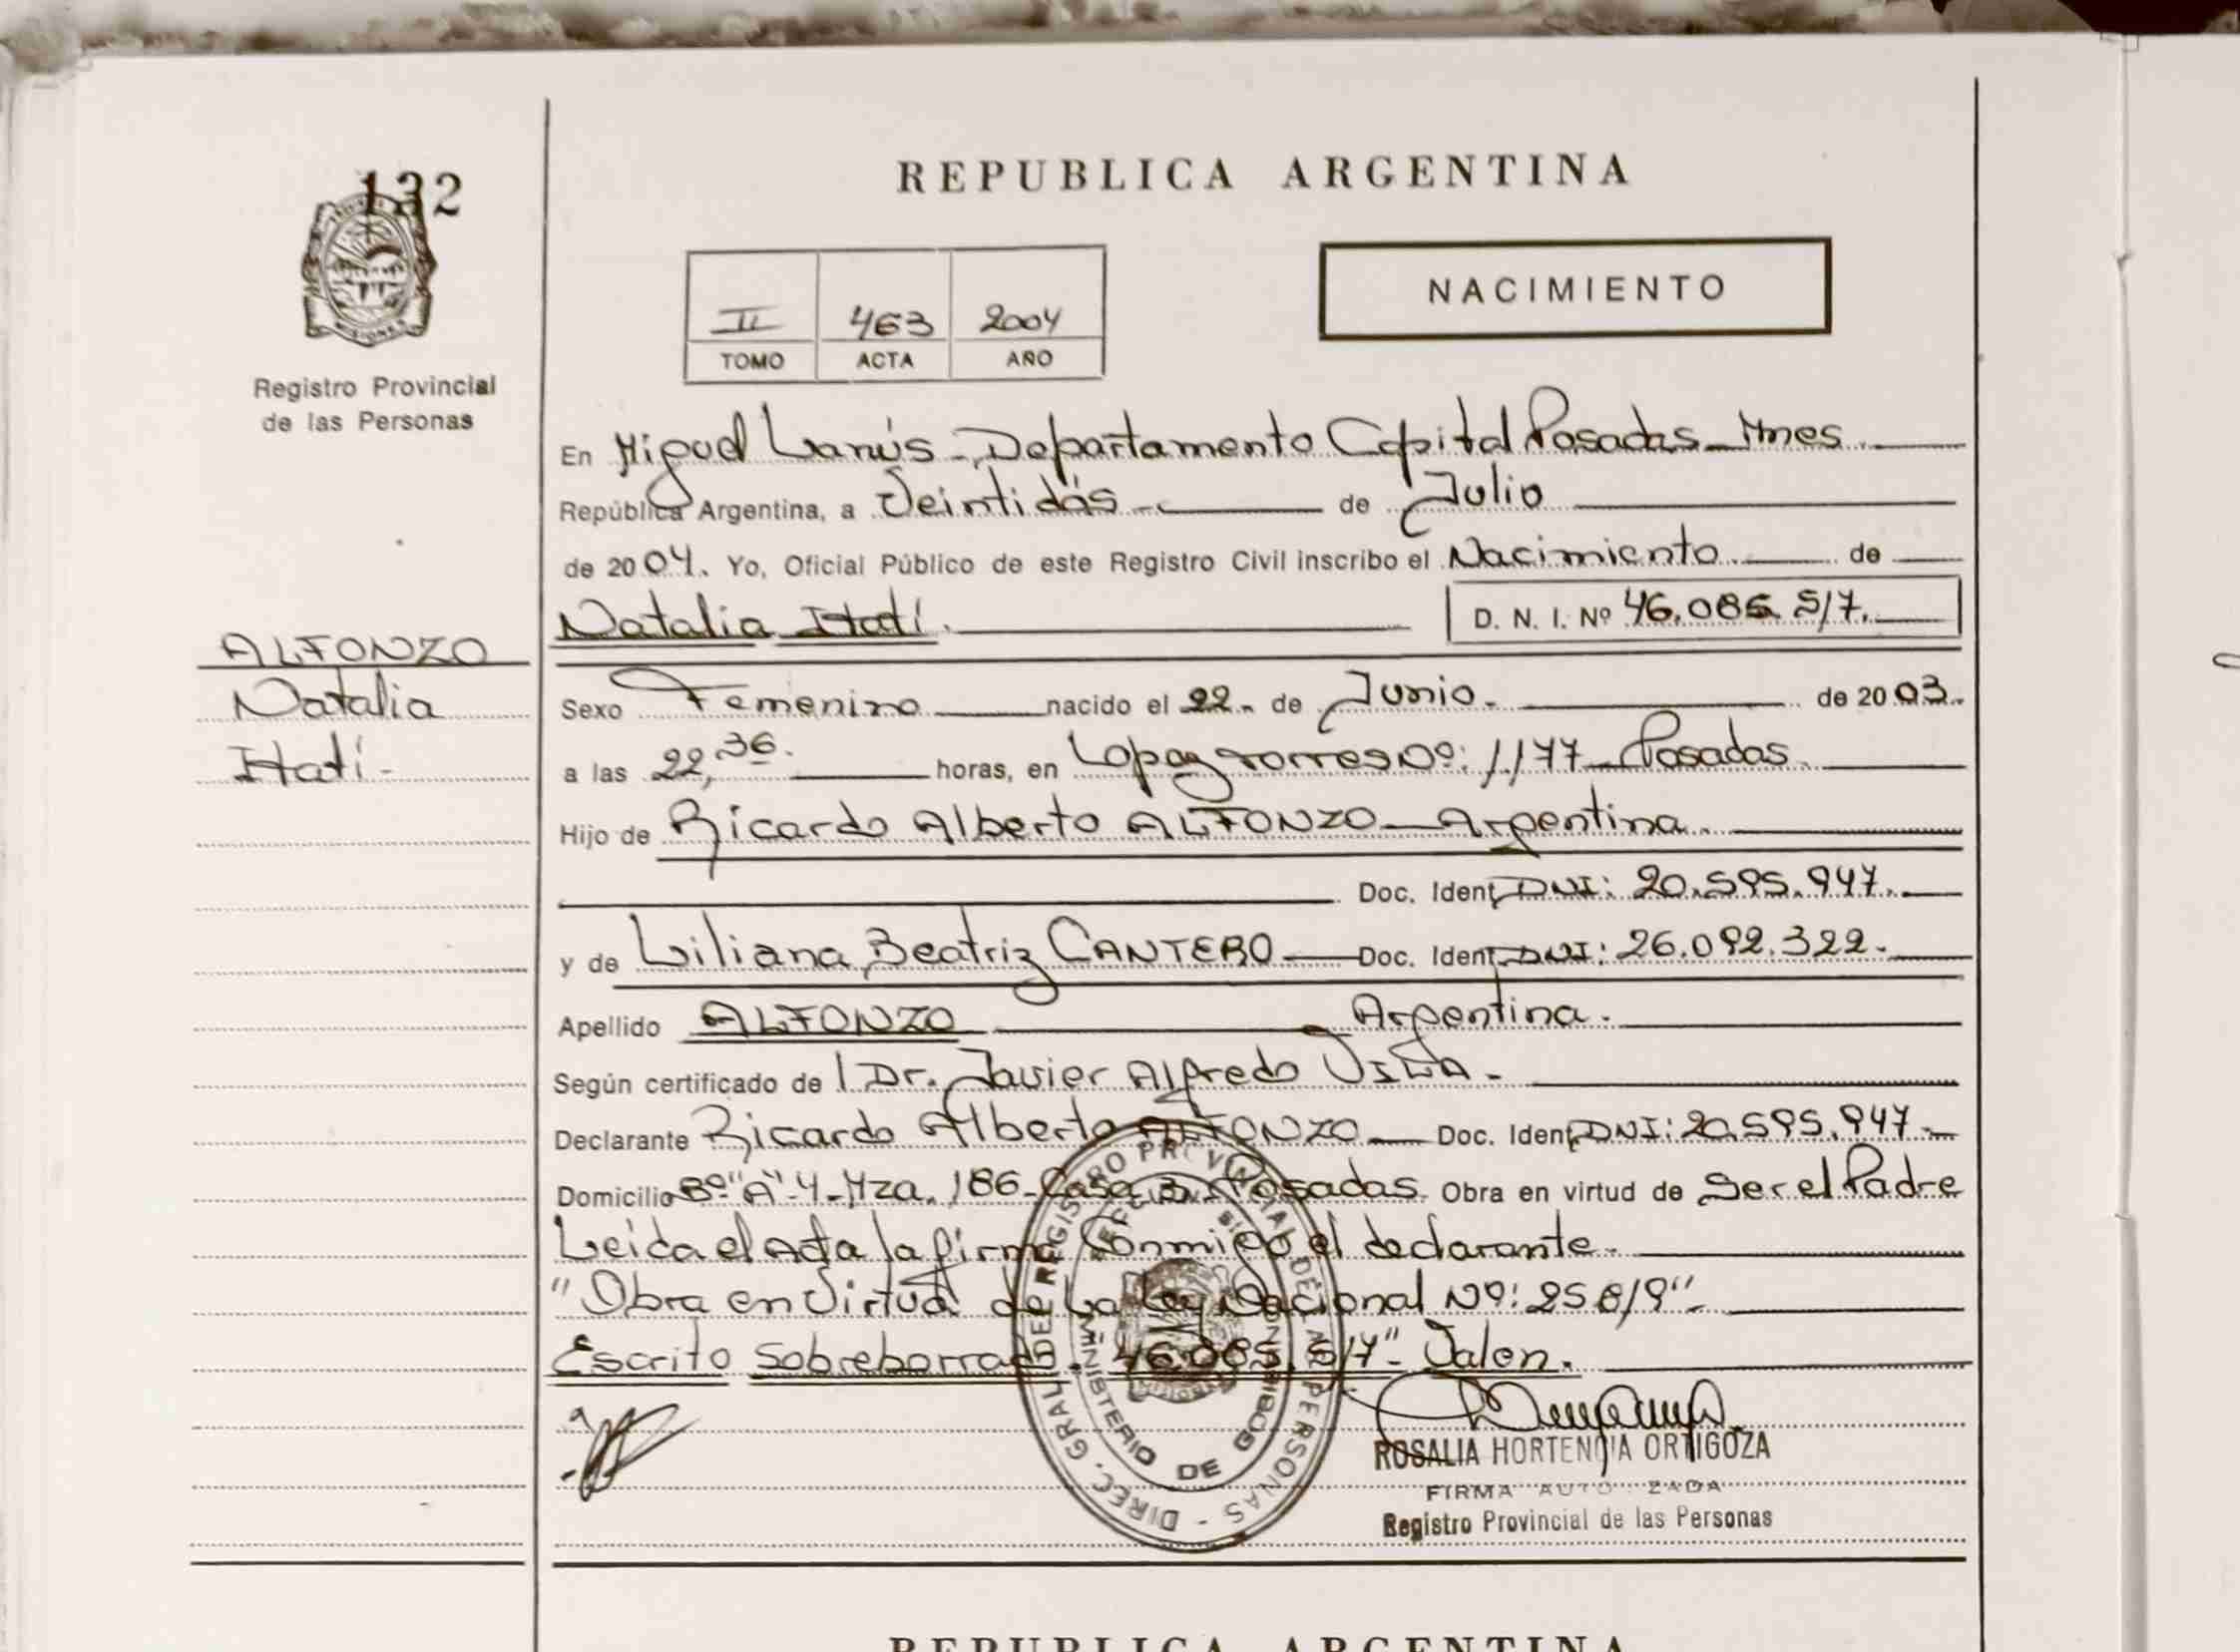 132
REPUBLICA ARGENTINA
NACIMIENTO
II 463 2004
TOMO ACTA AÑO
Registro Provincial
de las Personas
En Miguel Lanús - Departamento Capital Posadas - Mnes
República Argentina, a Veintidós de Julio
de 2004. Yo, Oficial Público de este Registro Civil inscribo el Nacimiento de
Natalia Itatí. D. N. I. Nº 46.085.517.
ALFONZO
Natalia
Itatí-
Sexo Femenino nacido el 22- de Junio. de 2003.
a las 22,36. horas, en Lopez Torres Nº: 1.177 - Posadas.
Hijo de Ricardo Alberto ALFONZO - Argentina.
Doc. Ident. DNI: 20.595.947.
y de Liliana Beatriz CANTERO Doc. Ident. DNI: 26.092.322.
Apellido ALFONZO Argentina.
Según certificado de l Dr. Javier Alfredo
Declarante Ricardo Alberto ALFONZO Doc. Ident. DNI: 20.595.947-
Domicilio Bº "A"-4- Mza. 186- Casa 3- Posadas. Obra en virtud de Ser el Padre
Leida el Acta la firma Conmigo el declarante.
"Obra en Virtud de La Ley Nacional Nº: 25819"
Escrito Sobreborrado: 46.085.517"- Valen.
DIREC. GRAL. DE REGISTRO PROVINCIAL DE LAS PERSONAS -
MINISTERIO DE GOBIERNO
ROSALIA HORTENCIA ORTIGOZA
FIRMA AUTORIZADA
Registro Provincial de las Personas
REPUBLICA ARGENTINA